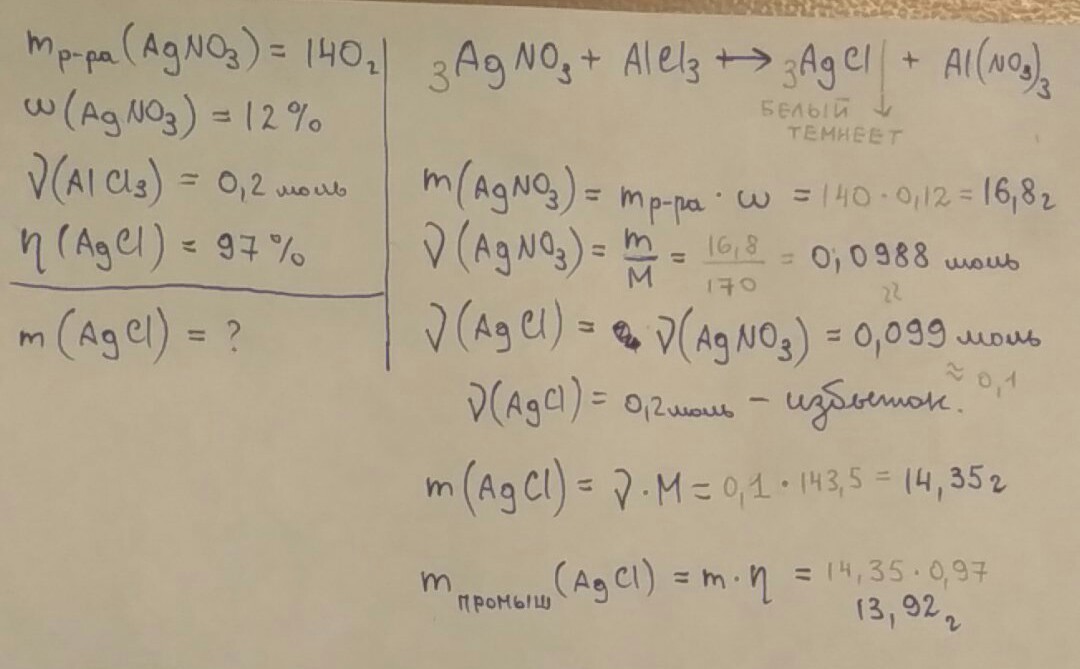 mр-ра(AgNO3) = 140г
ω(AgNO3) = 12%
ν(AlCl3) = 0,2 моль
η(AgCl) = 97%
m(AgCl) = ?
3AgNO3 + AlCl3 ⟷ 3AgCl↓ + Al(NO3)3
БЕЛЫЙ
ТЕМНЕЕТ
m(AgNO3) = mр-ра · ω = 140 · 0,12 = 16,8г
ν(AgNO3) = m/M = 16,8/170 = 0,0988 моль
≈
ν(AgCl) = ν(AgNO3) = 0,099 моль
≈ 0,1
ν(AgCl) = 0,2моль – избыток.
m(AgCl) = ν · M = 0,1 · 143,5 = 14,35г
mпромыш(AgCl) = m · η = 14,35 · 0,97
13,92г